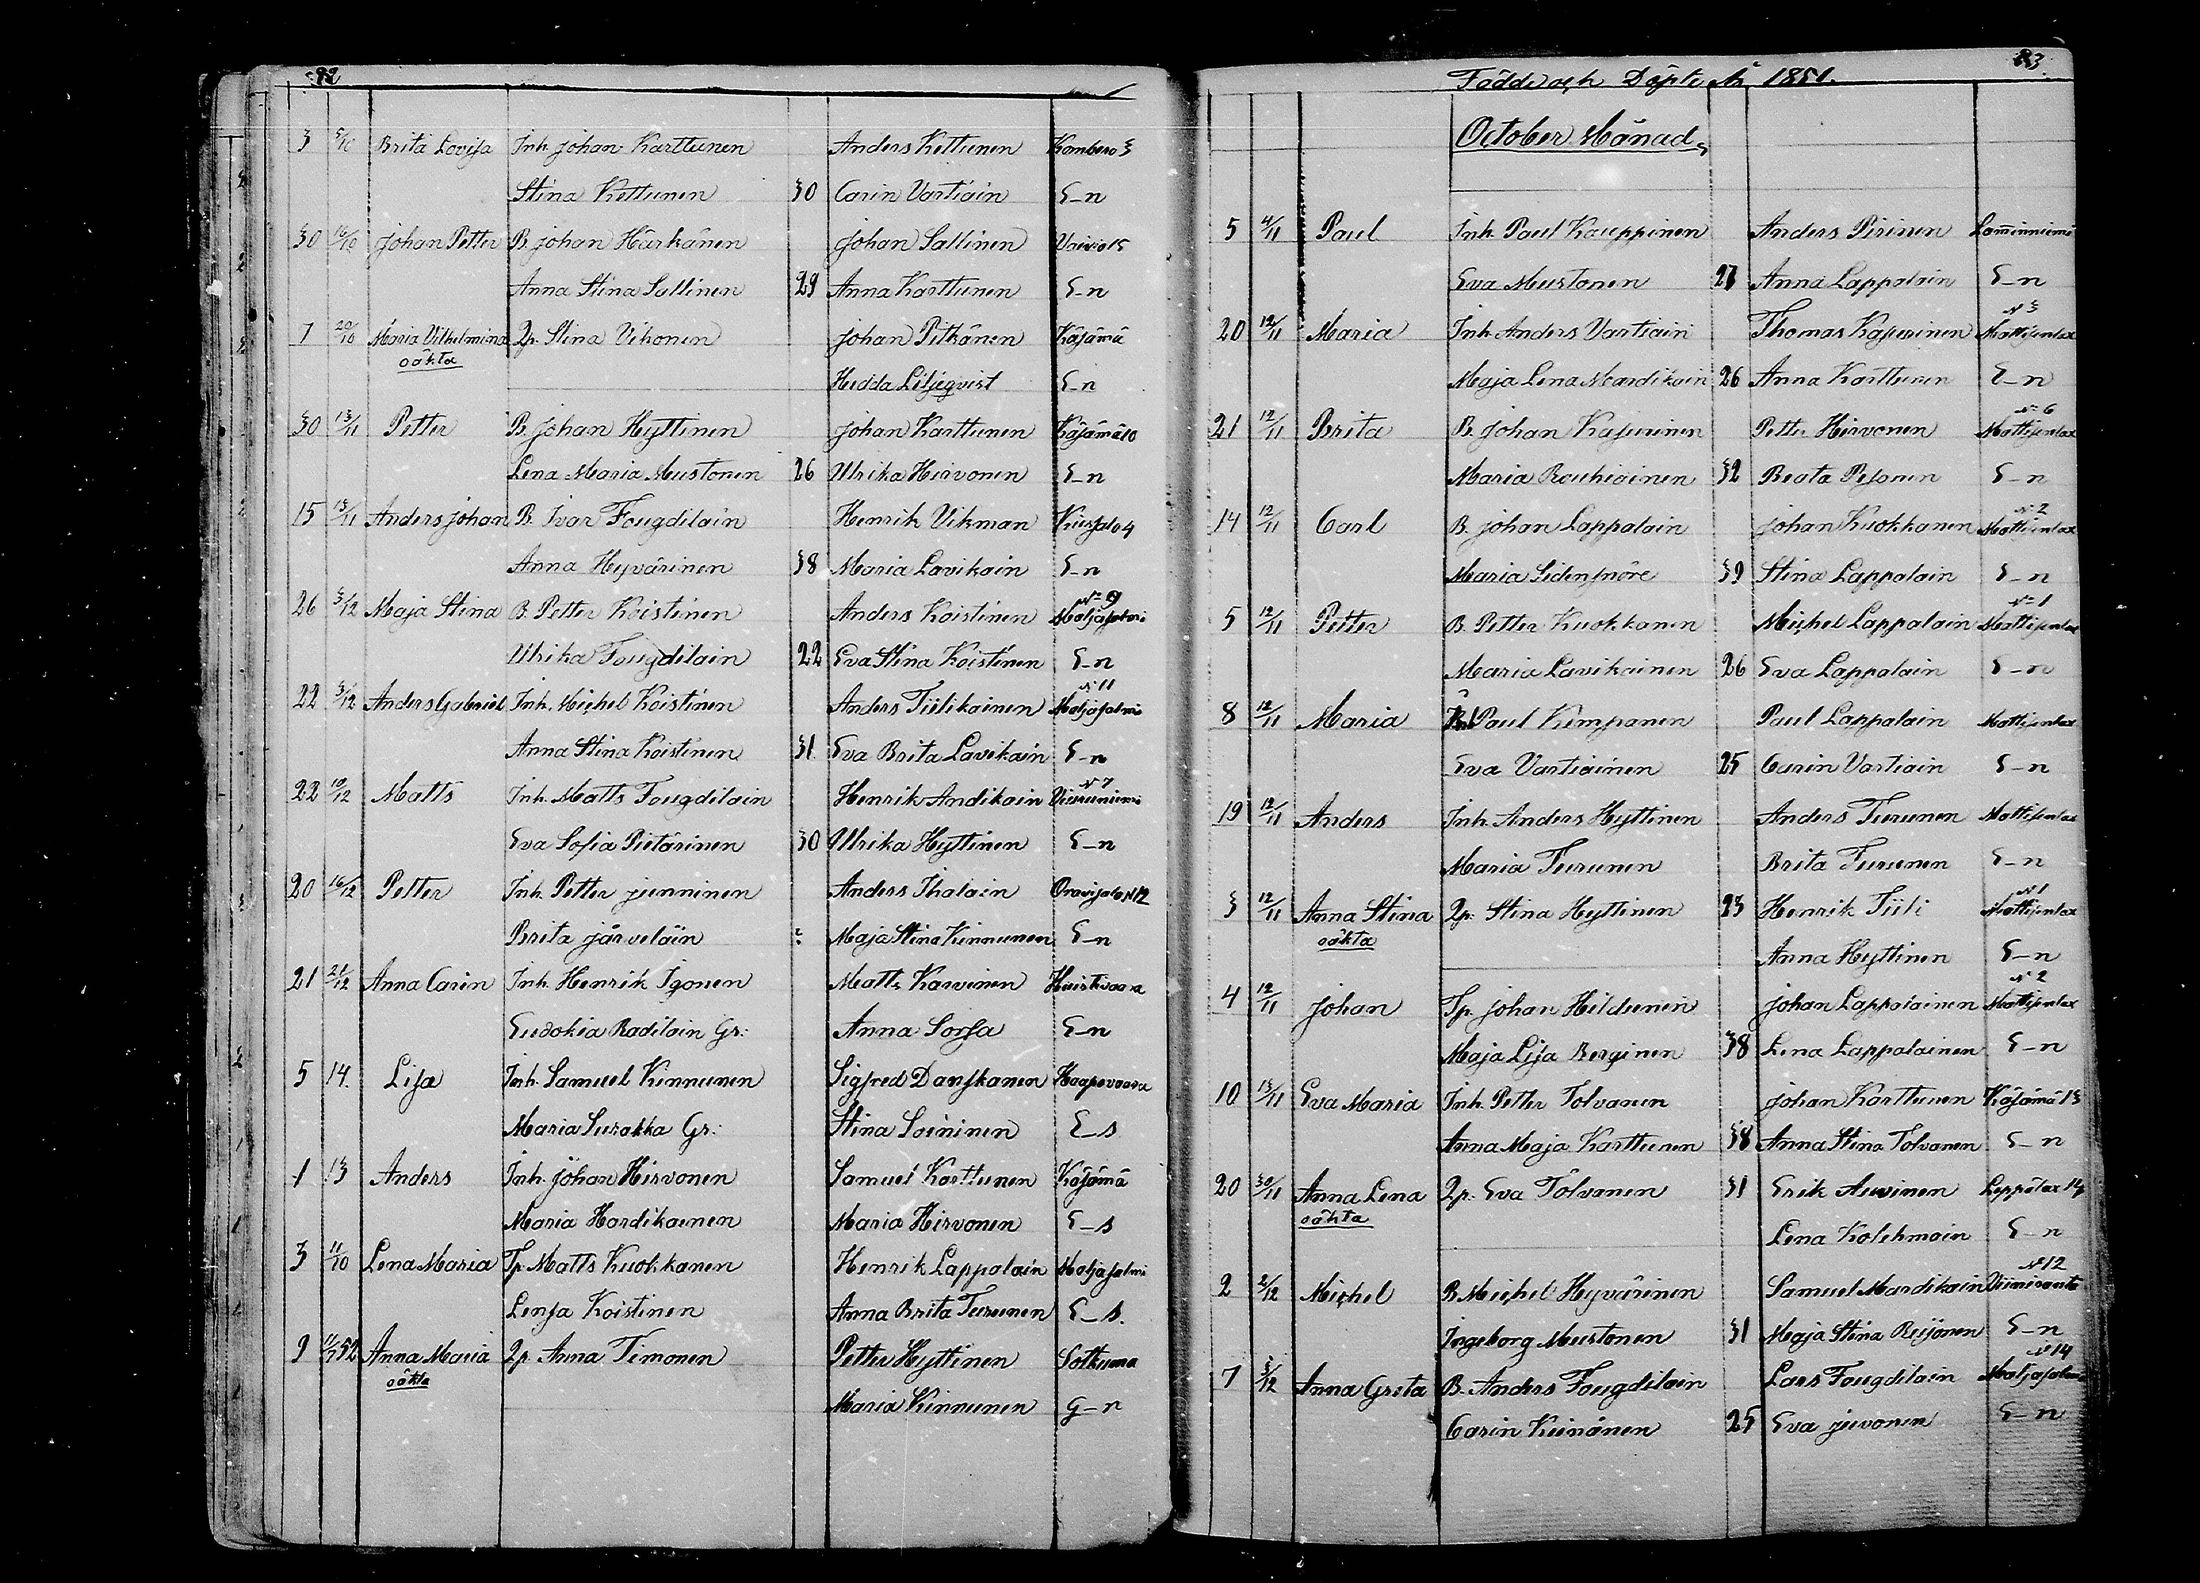 82
3 5/10 Brita Lovisa Inh. Johan Karttunen Anders Kettunen Kombero 3
Stina Kettunen 30 Carin Vartiain S-n
30 16/10 Johan Petter B. Johan Härkänen Johan Sallinen Vaivio 15
Anna Stina Sallinen 29 Anna Karttunen S-n
7 20/10 Maria Vilhelmina Qp. Stina Vikonen Johan Pitkänen Käsämä
oäkta
Hedda Liljeqvist S-n
30 13/11 Petter B. Johan Hyttinen Johan Karttunen Käsämä 10
Lena Maria Mustonen 26 Ulrika Hirvonen S-n
15 13/11 Anders Johan B. Ivar Fougdilain Henrik Vikman Kuusjalo 4
Anna Hyvärinen 38 Maria Lavikain S-n
26 3/12 Maja Stina B. Petter Koistinen Anders Koistinen N:o 9 Maljasalmi
Ulrika Fougdilain 22 Eva Stina Koistinen S-n
22 3/12 Anders Gabriel Inh. Michel Koistinen Anders Tiilikainen N 11 Maljasalmi
Anna Stina Koistinen 31 Eva Brita Lavikain S-n
22 10/12 Matts Inh. Matts Fougdilain Henrik Andikain N 7 Viuruniemi
Eva Sofia Pietärinen 30 Ulrika Hyttinen S-n
20 16/12 Petter Inh. Petter Junninen Anders Ihalain Oravisalo N 12
Brita Järveläin Maja Stina Kinnunen S-n
21 21/12 Anna Carin Inh. Henrik Igonen Matts Karvinen
Eudokia Radilain Gr: Anna Sorsa S-n
5 14. Lisa Inh. Samuel Kinnunen Sigfred Danskanen Haapovaara
Maria Surakka Gr: Stina Soininen S-s
1 13 Anders Inh. Johan Hirvonen Samuel Karttunen Käsämä
Maria Hardikainen Maria Hirvonen S-s
3 11/10 Lena Maria Tp. Matts Kuokkanen Henrik Lappalain Maljasalmi
Lensa Koistinen Anna Brita Turunen S-s.
9 52 Anna Maria Qp. Anna Timonen Petter Hyttinen Sotkuma
oäkta
Maria Kinnunen G-n
Födde och Döpte År 1851. 83
October Månad
5 4/11 Paul Inh. Paul Kauppinen Anders Pirinen Lamminniemi
Eva Mustonen 27 Anna Lappalain S-n
20 12/11 Maria Inh. Anders Vartiain Thomas Kasurinen N 3 Mattisenlax
Maja Lena Mardikain 26 Anna Karttunen S-n
21 12/11 Brita B. Johan Kasurinen Petter Hirvonen N:o 6 Mattisenlax
Maria Rouhiainen 32 Beata Pesonen S-n
14 12/11 Carl B. Johan Lappalain Johan Kuokkanen N:o 2 Mattisenlax
Maria Sidensnöre 39 Stina Lappalain S-n
5 12/11 Petter B. Petter Kuokkanen Michel Lappalain N:o 1 Mattisenlax
Maria Lavikainen 26 Eva Lappalain S-n
8 12/11 Maria Paul Kimpanen Paul Lappalain Mattisenlax
Eva Vartiainen 25 Carin Vartiain S-n
19 12/11 Anders Inh. Anders Hyttinen Anders Turunen Mattisenlax
Maria Turunen Brita Turunen S-n
3 12/11 Anna Stina Qp. Stina Hyttinen 23 Henrik Tiili N 1 Mattisenlax
oäkta
Anna Hyttinen S-n
4 12/11 Johan Tp. Johan Hildunen Johan Lappalainen N 2 Mattisenlax
Maja Lisa Berginen 38 Lena Lappalainen S-n
10 13/11 Eva Maria Inh. Petter Tolvanen Johan Karttunen Käsämä 13
Anna Maja Karttunen 38 Anna Stina Tolvanen S-n
20 30/11 Anna Lena Qp. Eva Tolvanen 31 Erik Auvinen Leppälax 14
oäkta
Lena Kolehmain S-n
2 2/12 Michel B. Michel Hyvärinen Samuel Mardikain N 12 Viinivanta
Ingeborg Mustonen 31 Maja Stina Reijonen S-n
7 3/12 Anna Greta B. Anders Fougdilain Lars Fougdilain N 14 Maljasalmi
Carin Keinänen 25 Eva Juvonen S-n